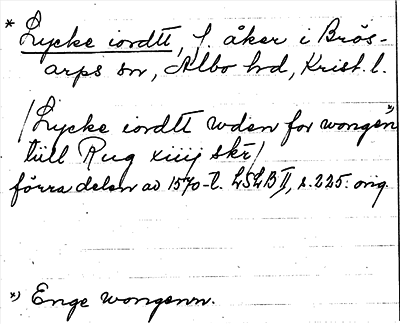 * Lycke iordtt, f. åker i Brös-
arps sn, Albo hd, Krist. l.
/Lycke iordtt wden for wongen *)
tiill Rug xiiij skr/
förra delen av 1570-t. LSLB II, s. 225. orig.
*) Enge wongenn.